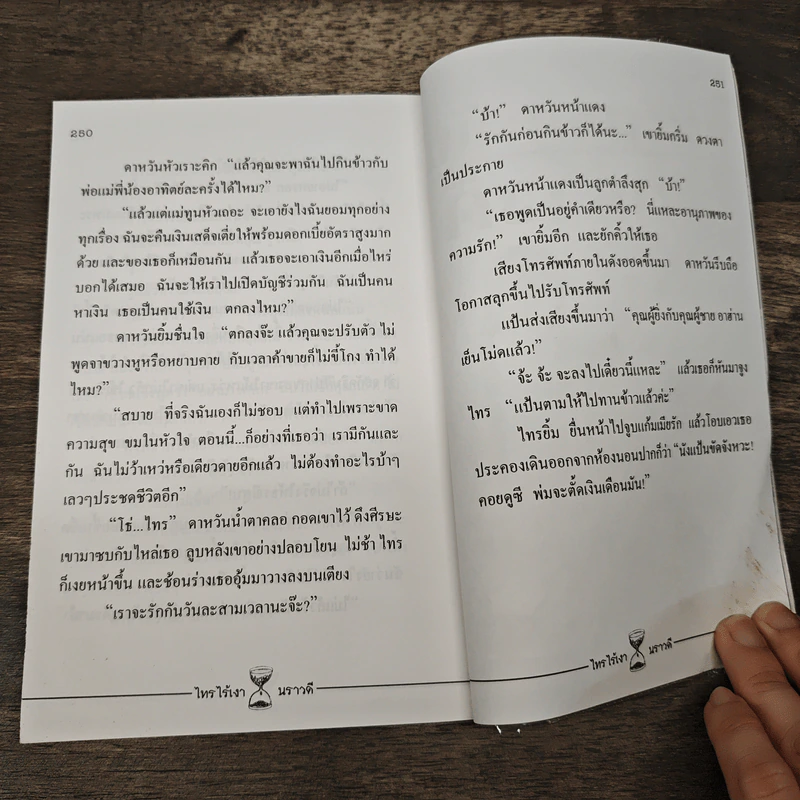 250
ดาหวันหัวเราะคิก “แล้วคุณจะพาฉันไปกินข้าวกับ
พ่อแม่พี่น้องอาทิตย์ละครั้งได้ไหม?”
“แล้วแต่แม่ทูนหัวเถอะ จะเอายังไงฉันยอมทุกอย่าง
ทุกเรื่อง ฉันจะคืนเงินเสด็จเตี่ยให้พร้อมดอกเบี้ยอัตราสูงมาก
ด้วย และของเธอก็เหมือนกัน แล้วเธอจะเอาเงินอีกเมื่อไหร่
บอกได้เสมอ ฉันจะให้เราไปเปิดบัญชีร่วมกัน ฉันเป็นคน
หาเงิน เธอเป็นคนใช้เงิน ตกลงไหม?”
ดาหวันยิ้มชื่นใจ “ตกลงจ๊ะ แล้วคุณจะปรับตัว ไม่
พูดจาขวางหูหรือหยาบคาย กับเวลาค้าขายก็ไม่ขี้โกง ทำได้
ไหม?”
“สบาย ที่จริงฉันเองก็ไม่ชอบ แต่ทำไปเพราะขาด
ความสุข ขมในหัวใจ ตอนนี้...ก็อย่างที่เธอว่า เรามีกันและ
กัน ฉันไม่ว้าเหว่หรือเดียวดายอีกแล้ว ไม่ต้องทำอะไรบ้าๆ
เลวๆประชดชีวิตอีก”
“โธ่...ไทร” ดาหวันน้ำตาคลอ กอดเขาไว้ ดึงศีรษะ
เขามาซบกับไหล่เธอ ลูบหลังเขาอย่างปลอบโยน ไม่ช้า ไทร
ก็เงยหน้าขึ้น และช้อนร่างเธออุ้มมาวางลงบนเตียง
“เราจะรักกันวันละสามเวลานะจ๊ะ?”
ไทรไร้เงา นราวดี
251
“บ้า!” ดาหวันหน้าแดง
“รักกันก่อนกินข้าวก็ได้นะ...” เขายิ้มกริ่ม ดวงตา
เป็นประกาย
ดาหวันหน้าแดงเป็นลูกตำลึงสุก “บ้า!”
“เธอพูดเป็นอยู่คำเดียวหรือ? นี่แหละอานุภาพของ
ความรัก!” เขายิ้มอีก และยักคิ้วให้เธอ
เสียงโทรศัพท์ภายในดังออดขึ้นมา ดาหวันรีบถือ
โอกาสลุกขึ้นไปรับโทรศัพท์
แป้นส่งเสียงขึ้นมาว่า “คุณผู้ยิ่งกับคุณผู้ชาย อาฮ่าน
เย็นโม่ดแล้ว!”
“จ้ะ จ้ะ จะลงไปเดี๋ยวนี้แหละ” แล้วเธอก็หันมาจูง
ไทร “แป้นตามให้ไปทานข้าวแล้วค่ะ”
ไทรยิ้ม ยื่นหน้าไปจูบแก้มเมียรัก แล้วโอบเอวเธอ
ประคองเดินออกจากห้องนอนปากก็ว่า “นังแป้นขัดจังหวะ!
คอยดูซี พ่มจะตั้ดเงินเดือนมัน!”
ไทรไร้เงา นราวดี